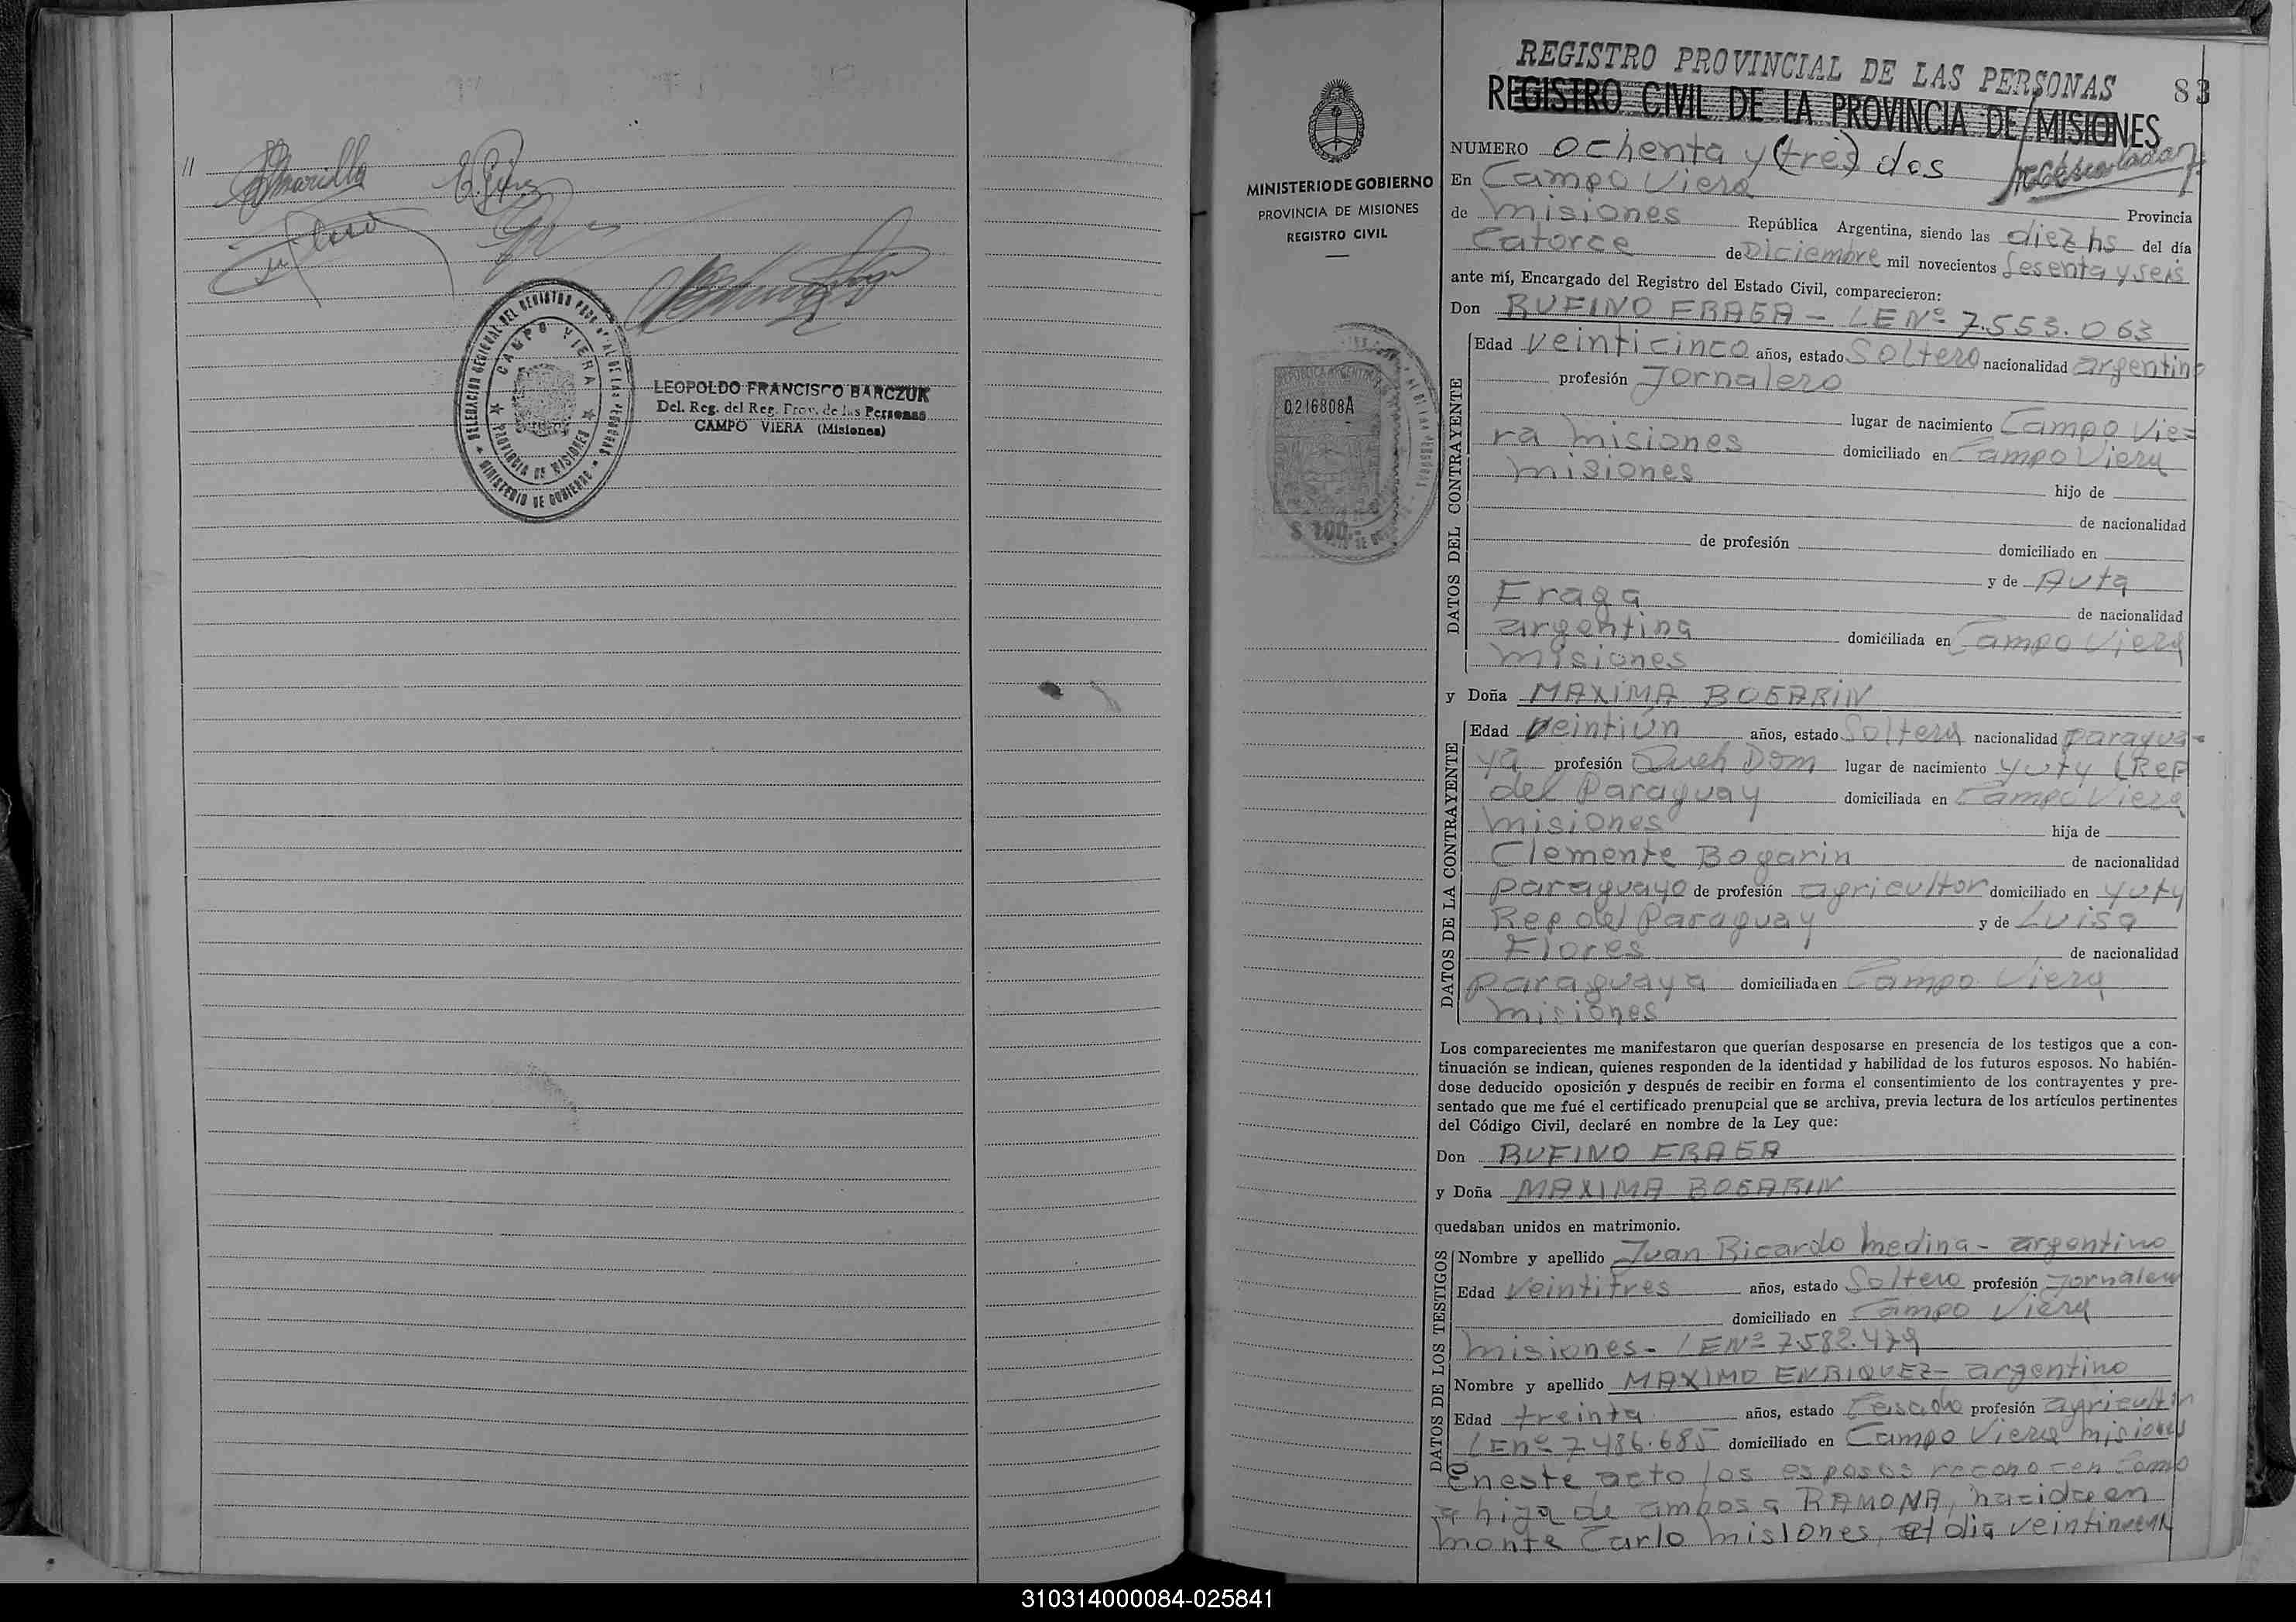 LEOPOLDO FRANCISCO BARCZUK
Del. Reg. del Reg. Prov. de las Personas
CAMPO VIERA (Misiones)
DELEGACION REGIONAL DEL REGISTRO PROVINCIAL DE LAS PERSONAS
CAMPO VIERA
PROVINCIA DE MISIONES
MINISTERIO DE GOBIERNO
REGISTRO PROVINCIAL DE LAS PERSONAS
83
REGISTRO CIVIL DE LA PROVINCIA DE MISIONES
MINISTERIO DE GOBIERNO
PROVINCIA DE MISIONES
REGISTRO CIVIL
0216808A
$ 100
NUMERO Ochenta y (tres) dos
En Campo Viera Provincia
de Misiones República Argentina, siendo las diez hs del día
Catorce de Diciembre mil novecientos Sesenta y seis
ante mí, Encargado del Registro del Estado Civil, comparecieron:
Don RUFINO FRAGA - LE Nº 7.553.063
DATOS DEL CONTRAYENTE
Edad veinticinco años, estado Soltero nacionalidad argentino
profesión Jornalero
lugar de nacimiento Campo Vie=
ra Misiones domiciliado en Campo Viera
Misiones hijo de
de nacionalidad
de profesión domiciliado en
y de Auta
Fraga de nacionalidad
argentina domiciliada en Campo Viera
Misiones
y Doña MAXIMA BOGARIN
DATOS DE LA CONTRAYENTE
Edad veintiún años, estado Soltera nacionalidad paragua-
ya profesión Queh Dom lugar de nacimiento Yuty (Rep
del Paraguay domiciliada en Campo Viera
Misiones hija de
Clemente Bogarin de nacionalidad
paraguayo de profesión agricultor domiciliado en Yuty
Rep del Paraguay y de Luisa
Flores de nacionalidad
paraguaya domiciliada en Campo Viera
Misiones
Los comparecientes me manifestaron que querían desposarse en presencia de los testigos que a con-
tinuación se indican, quienes responden de la identidad y habilidad de los futuros esposos. No habién-
dose deducido oposición y después de recibir en forma el consentimiento de los contrayentes y pre-
sentado que me fué el certificado prenupcial que se archiva, previa lectura de los artículos pertinentes
del Código Civil, declaré en nombre de la Ley que:
Don RUFINO FRAGA
y Doña MAXIMA BOGARIN
quedaban unidos en matrimonio.
DATOS DE LOS TESTIGOS
Nombre y apellido Juan Ricardo Medina - argentino
Edad Veintitres años, estado Soltero profesión Jornalero
domiciliado en Campo Viera
Misiones - LE Nº 7.582.479
Nombre y apellido MAXIMO ENRIQUEZ - argentino
Edad treinta años, estado Casado profesión agricultor
LE nº 7.486.685 domiciliado en Campo Viera Misiones
En este acto los esposos reconocen como
a hija de ambos a RAMONA, nacida en
Monte Carlo Misiones, el dia veintinueve
310314000084-025841